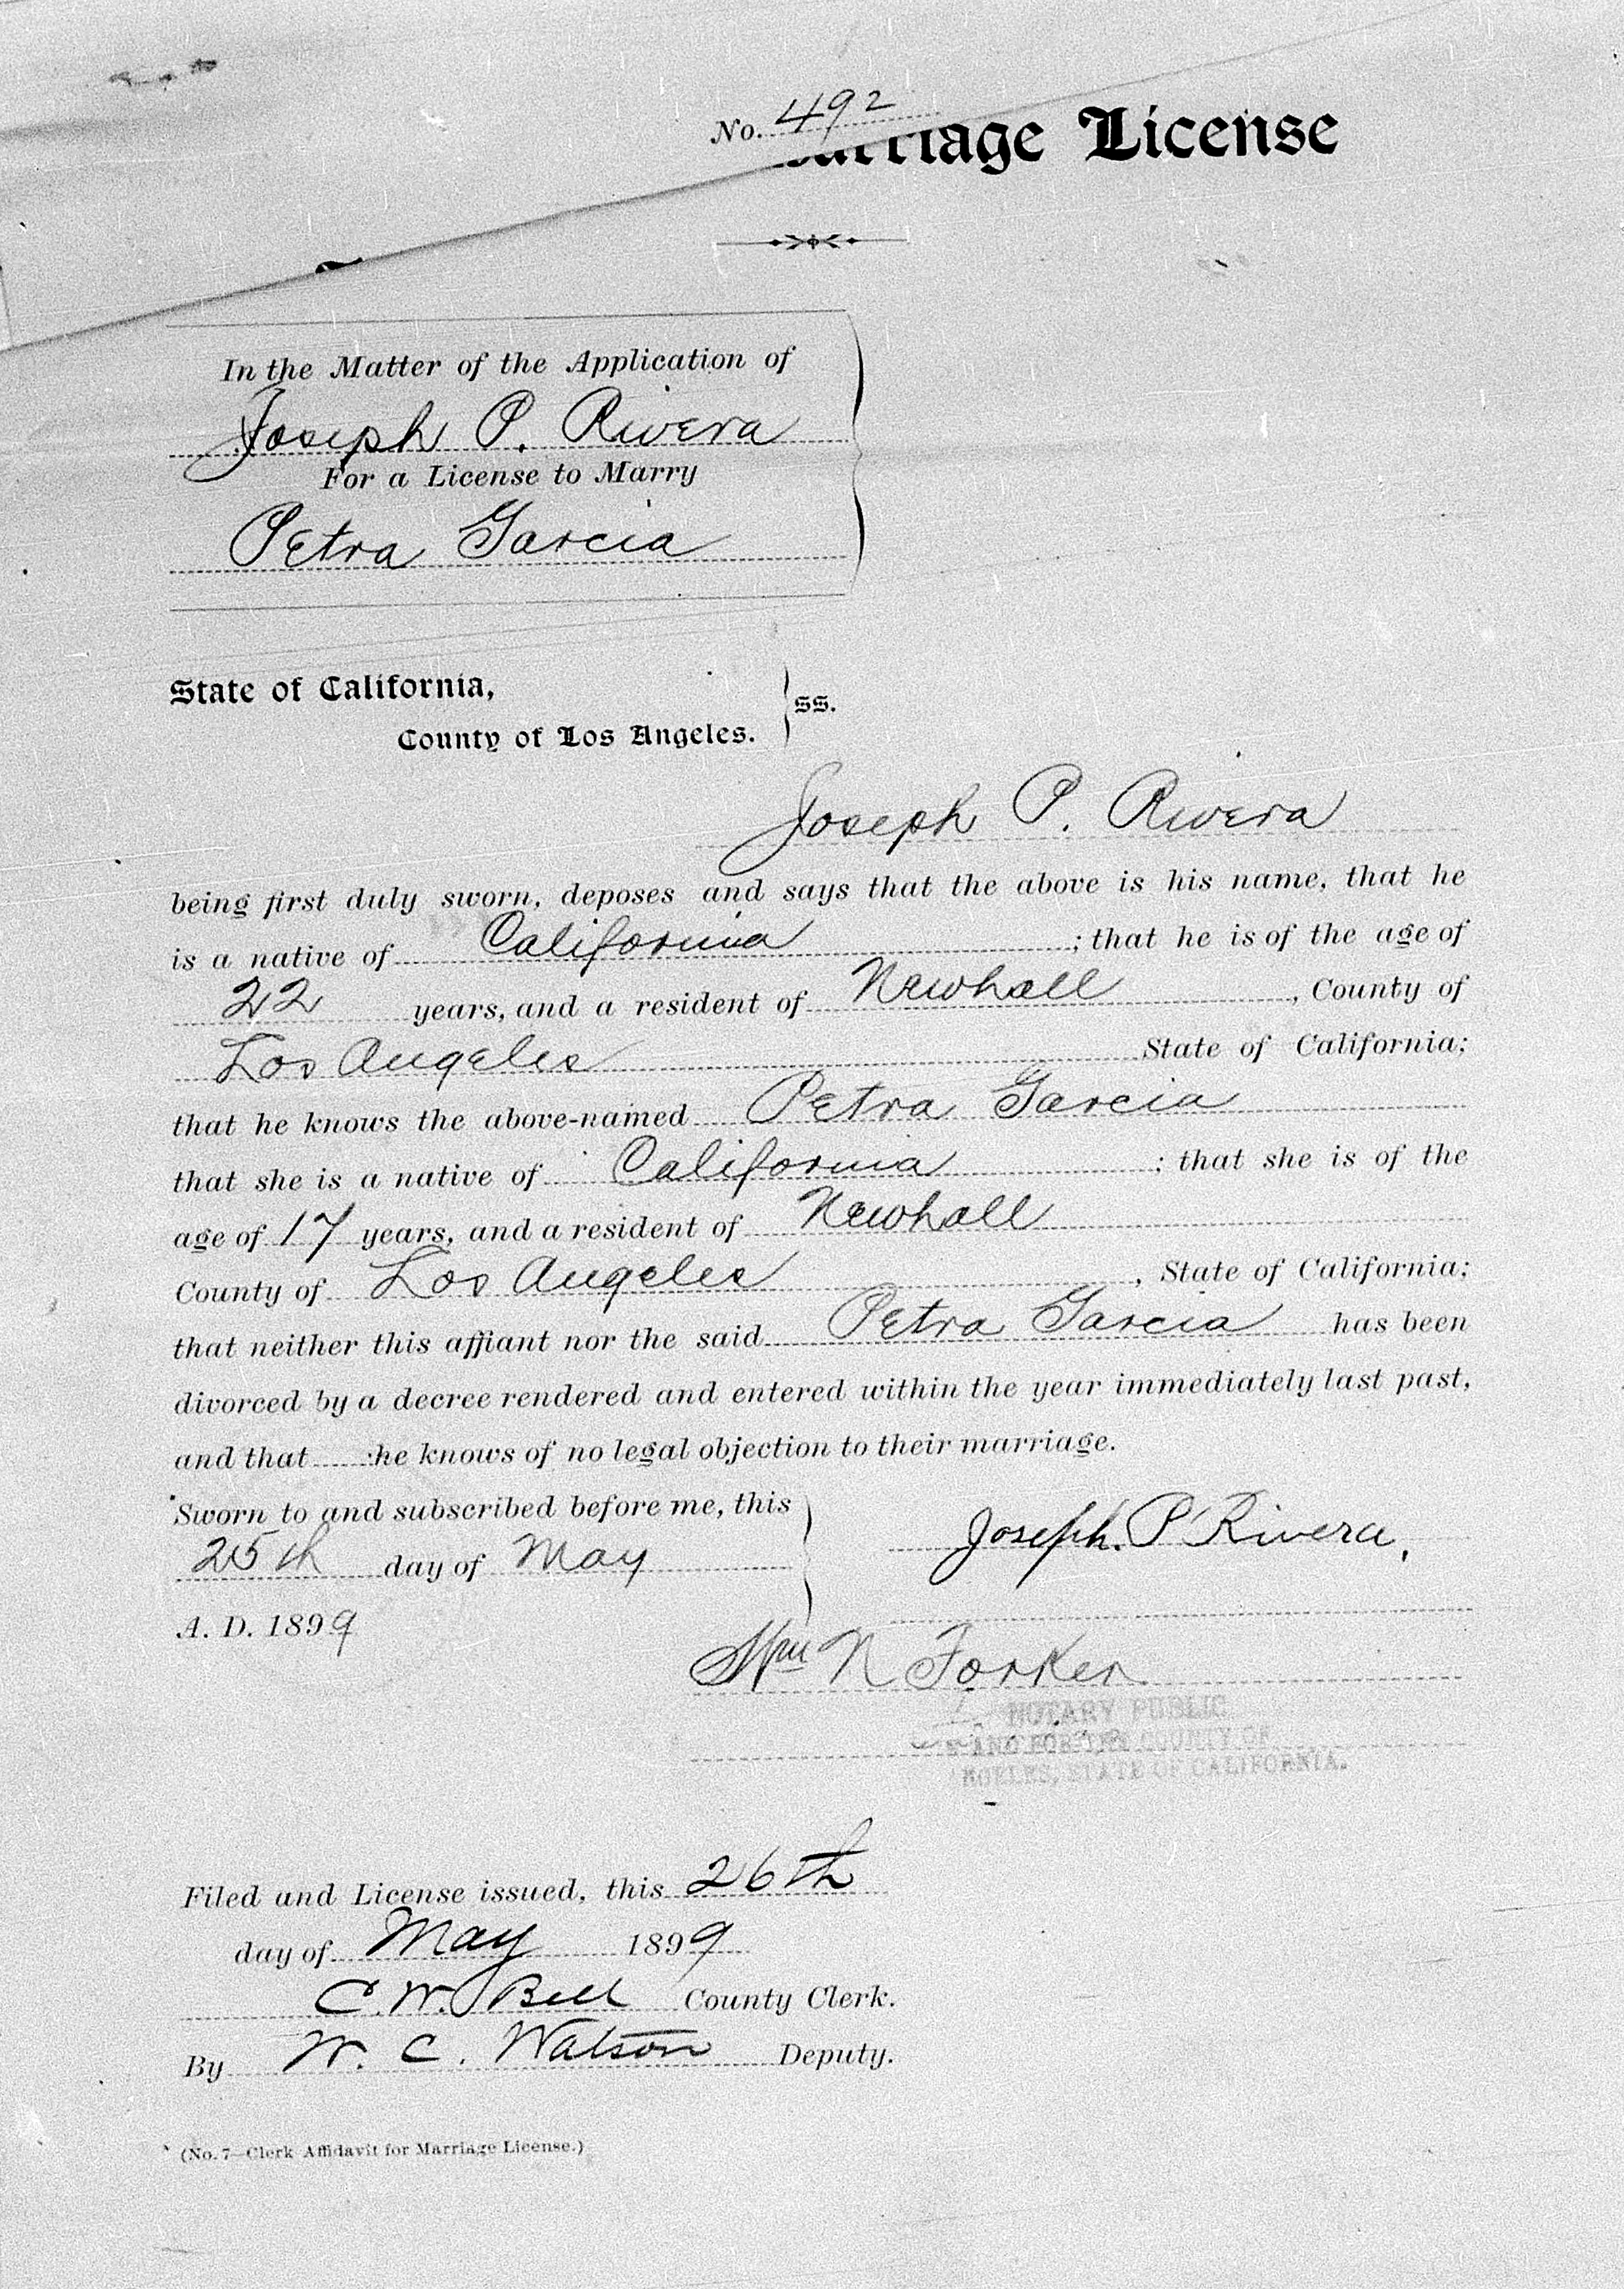 No. 492
rriage License
In the Matter of the Application of
Joseph P. Rivera
For a License to Marry
Petra Garcia
State of California,
County of Los Angeles.
ss.
Joseph P. Rivera
being first duly sworn, deposes and says that the above is his name, that he
is a native of California ; that he is of the age of
22 years, and a resident of Newhall , County of
Los Angeles State of California;
that he knows the above-named Petra Garcia
that she is a native of California ; that she is of the
age of 17 years, and a resident of Newhall
County of Los Angeles , State of California;
that neither this affiant nor the said Petra Garcia has been
divorced by a decree rendered and entered within the year immediately last past,
and that he knows of no legal objection to their marriage.
Sworn to and subscribed before me, this
25th day of May
A. D. 1899
Joseph. P Rivera,
Wm N Forker
NOTARY PUBLIC
AND FOR THE COUNTY OF
NGELES, STATE OF CALIFORNIA.
Filed and License issued, this 26th
day of May 1899
C. W. Bell County Clerk.
By W. C. Watson Deputy.
(No. 7—Clerk Affidavit for Marriage License.)